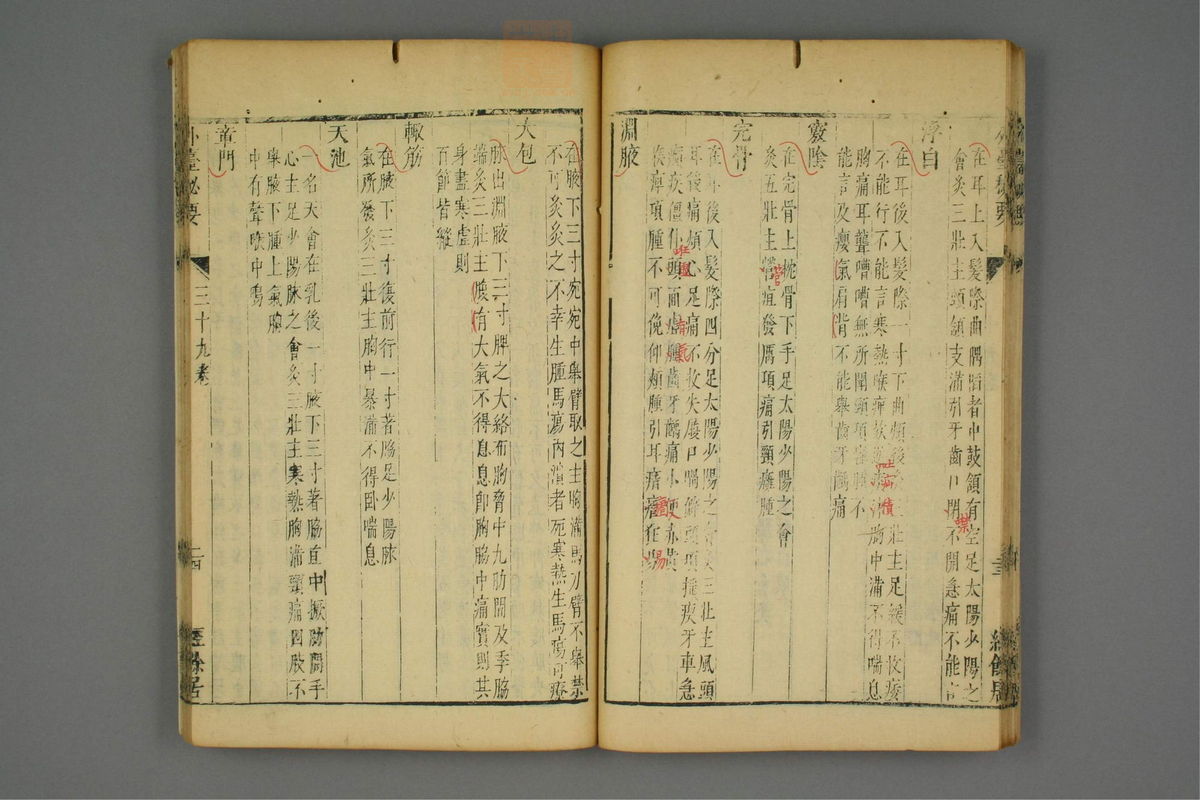 在耳上入髮際曲隅陷者中鼓頷有空足太陽少陽之
會灸三壯主頸頷支滿引牙齒口閉不開急痛不能言
浮白
在耳後入髮際一寸下曲頰後灸三壯主足緩不收痿
不能行不能言寒熱喉痺欬逆胸中滿不得喘息
胸痛耳聾嘈嘈無所聞頸項癰腫不
能言及癭氣肩背不能舉齒牙齲痛
竅陰
在完骨上枕骨下手足太陽少陽之會
灸五壯主管疽發厲項痛引頸癰腫
完骨
在耳後入髮際四分足太陽少陽之會灸三壯主風頭
耳後痛煩心足痛不收失履口喎僻頭項搖瘛牙車急
癲疾僵仆頭面虛腫齒牙齲痛小便赤黃
喉痺項腫不可俛仰頰腫引耳瘖瘧狂易
淵腋
在腋下三寸宛宛中舉臂取之主胸滿馬刀臂不舉禁
不可灸灸之不幸生腫馬瘍內潰者死寒熱生馬瘍可療
大包
脉出淵腋下三寸脾之大絡布胸脅中九肋間及季脇
端灸三壯主腹有大氣不得息息即胸脇中痛實則其
身盡寒虛則
百節皆縱
輒筋
在腋下三寸復前行一寸著脇足少陽脉
氣所發灸三壯主胸中暴滿不得卧喘息
天池
一名天會在乳後一寸腋下三寸著脇直中撅肋間手
心主足少陽脉之會灸三壯主寒熱胸滿頸痛四肢不
舉腋下腫上氣胸
中有聲喉中鳴
章門
外臺秘要
三十九卷
二四
經餘居